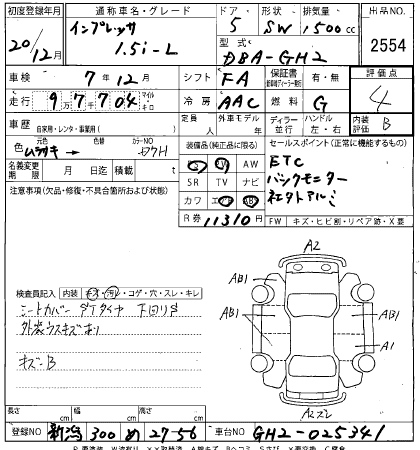 初度登録年月 通称車名・グレード ドア 形状 排気量 出品NO.
20/12月 インプレッサ 1.5i-L 5 SW 1500cc 2554
型式 DBA-GH2
車検 7年12月 シフト FA 保証書 有・無 評価点 4
走行 9万7千704 マイル キロ 冷房 AAC 燃料 G
車歴 自家用・レンタ・事業用( ) 定員 人 外車モデル 年 ディーラー 並行 ハンドル 左・右 内装評価 B
元色 色替 カラーNO 47H
装備品(純正品に限る) セールスポイント(正常に機能するもの)
名義変更期限 月 日迄 積載量 t
PS PW AW
SR TV ナビ
カワ エアB AB
R券 11310円
ETC
バックモニター
社外アルミ
注意事項(欠品・修復・不具合箇所および状態)
FW キズ・ヒビ割・リペア跡・X要
検査員記入 内装 キズ・汚レ・コゲ・穴・スレ・キレ
シートカバー ダブタイヤ 下回りサ
外装ウスキズ有り
キズ:B
A2
AB1
AB1
AB1
A1
A2 ズレ
長さ cm 幅 cm 高さ cm
登録NO 新潟 300 め 27-56 車台NO GH2-025341